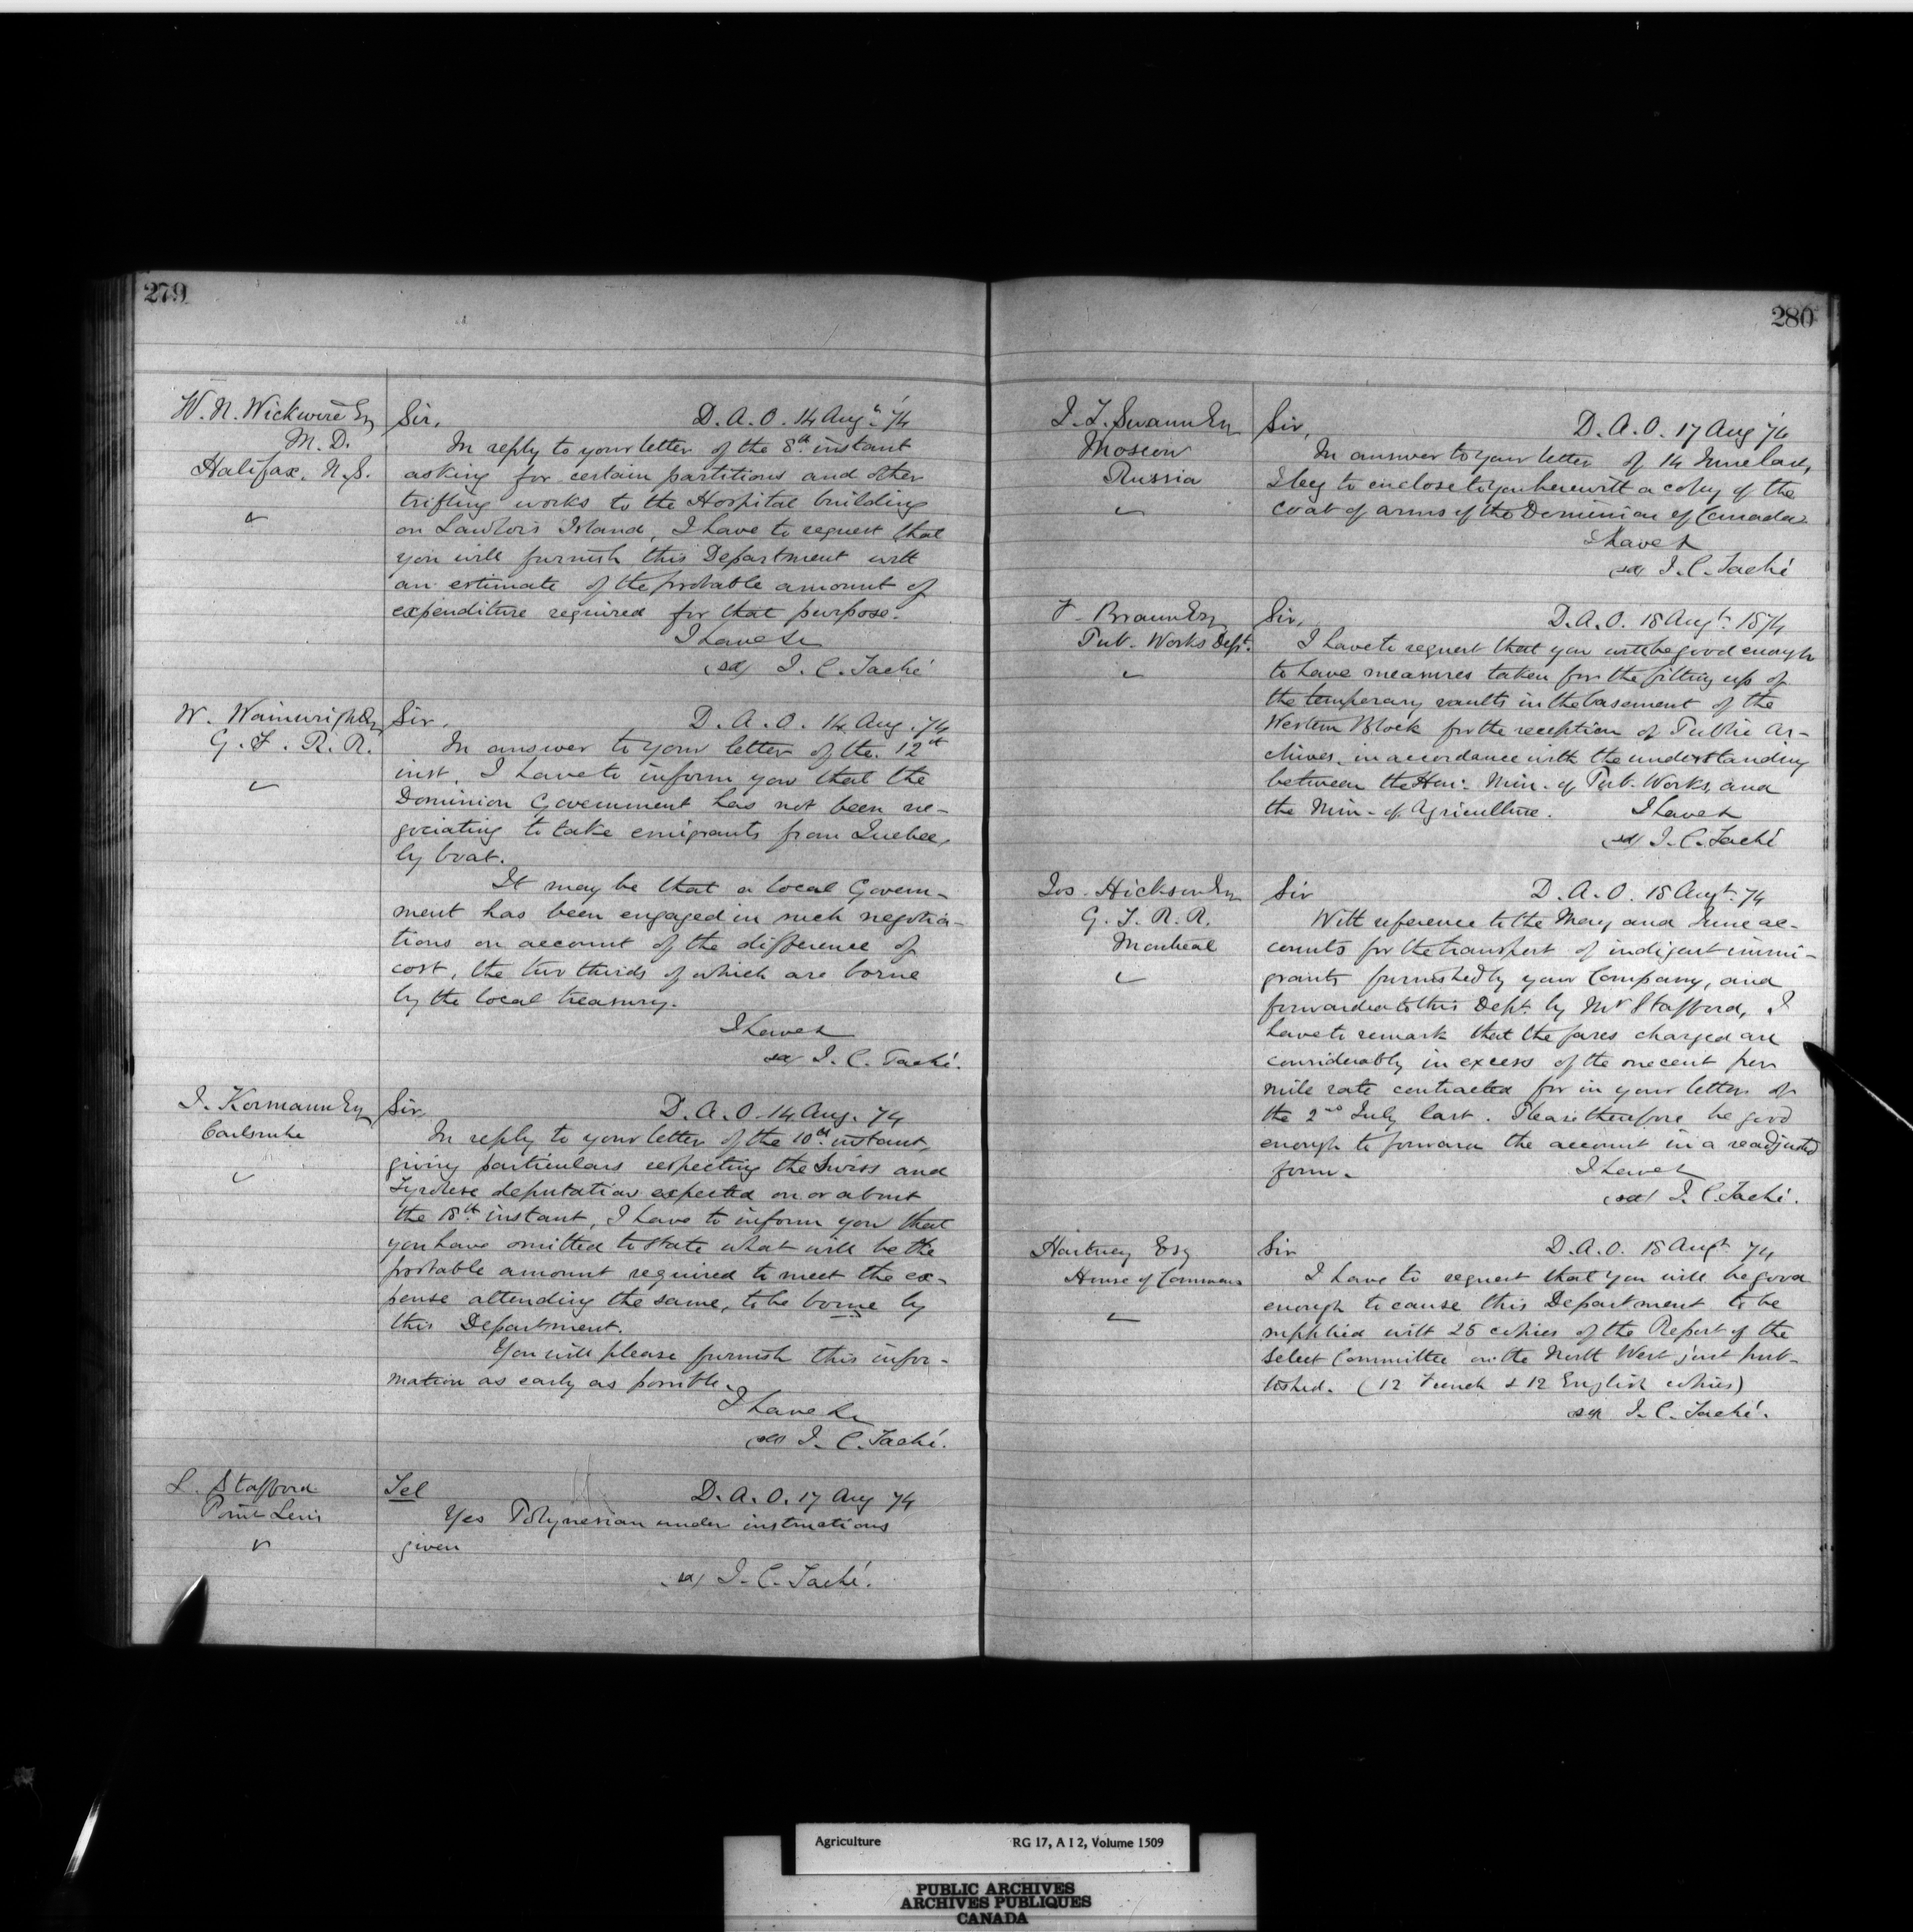 279
W. N. Wickwire Esq
M. D.
Halifax. N.S.
Sir, D. A. O. 14 Augt. 74
In reply to your letter of the 8th instant
asking for certain partitions and other
trifling works to the Hospital building
on Lawlor's Island, I have to request that
you will furnish this Department with
an estimate of the probable amount of
expenditure required for that purpose.
I have &c
(sd) J. C. Taché
W. Wainwright Esq
G. T. R. R.
Sir, D. A. O. 14 Aug. 74
In answer to your letter of the 12th
inst. I have to inform you that the
Dominion Government has not been ne-
gociating to take emigrants from Quebec,
by boat.
It may be that a local Govern-
ment has been engaged in such negotia-
tions on account of the difference of
cost, the two thirds of which are borne
by the local treasury.
I have &
sd/ J. C. Taché.
J. Kormann Esq
Carlsruhe
Sir, D. A. O. 14 Aug. 74
In reply to your letter of the 10th instant,
giving particulars respecting the Swiss and
Tyrolese deputation expected on or about
the 18th instant, I have to inform you that
you have omitted to state what will be the
probable amount required to meet the ex-
pense attending the same, to be borne by
this Department.
You will please furnish this infor-
mation as early as possible.
I have &c
(sd) J. C. Taché.
L. Stafford
Point Levis
Tel D. A. O. 17 Aug 74
Yes Polynesian under instructions
given
(sd) J. C. Taché.
280
J. T. Swann Esq
Moscow
Russia
Sir, D. A. O. 17 Aug 74
In answer to your letter of 14 June last,
I beg to enclose to you herewith a copy of the
coat of arms of the Dominion of Canada
I have &
(sd) J. C. Taché
F. Braun Esq
Pub. Works Dept.
Sir, D. A. O. 18 Augt. 1874
I have to request that you will be good enough
to have measures taken for the fitting up of
the temporary vaults in the basement of the
Western Block for the reception of Public Ar-
chives, in accordance with the understanding
between the Hon. Min. of Pub. Works, and
the Min. of Agriculture. I have &
(sd) J. C. Taché
Jos. Hickson Esq
G. T. R. R.
Montreal
Sir D. A. O. 18 Augt. 74
With reference to the May and June ac-
counts for the transport of indigent immi-
grants furnished by your Company, and
forwarded to this Dept. by Mr Stafford, I
have to remark that the fares charged are
considerably in excess of the one cent per
mile rate contracted for in your letter of
the 2nd July last. Please therefore be good
enough to forward the account in a readjusted
form. I have &
(sd) J. C. Taché.
Hartney Esq
House of Commons
Sir D. A. O. 18 Augt 74
I have to request that you will be good
enough to cause this Department to be
supplied with 25 copies of the Report of the
Select Committee on the North West just pub-
lished. (12 French & 12 English copies)
sd J. C. Taché.
Agriculture RG 17, A I 2, Volume 1509
PUBLIC ARCHIVES
ARCHIVES PUBLIQUES
CANADA